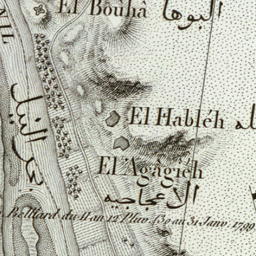 El Bouhâ
البوها
NIL
El Hableh
بحر النيل
El 'Agâgieh
الاعجاجيه
Belliard du 11 au 12 Pluv.
au 31 Janv. 1799